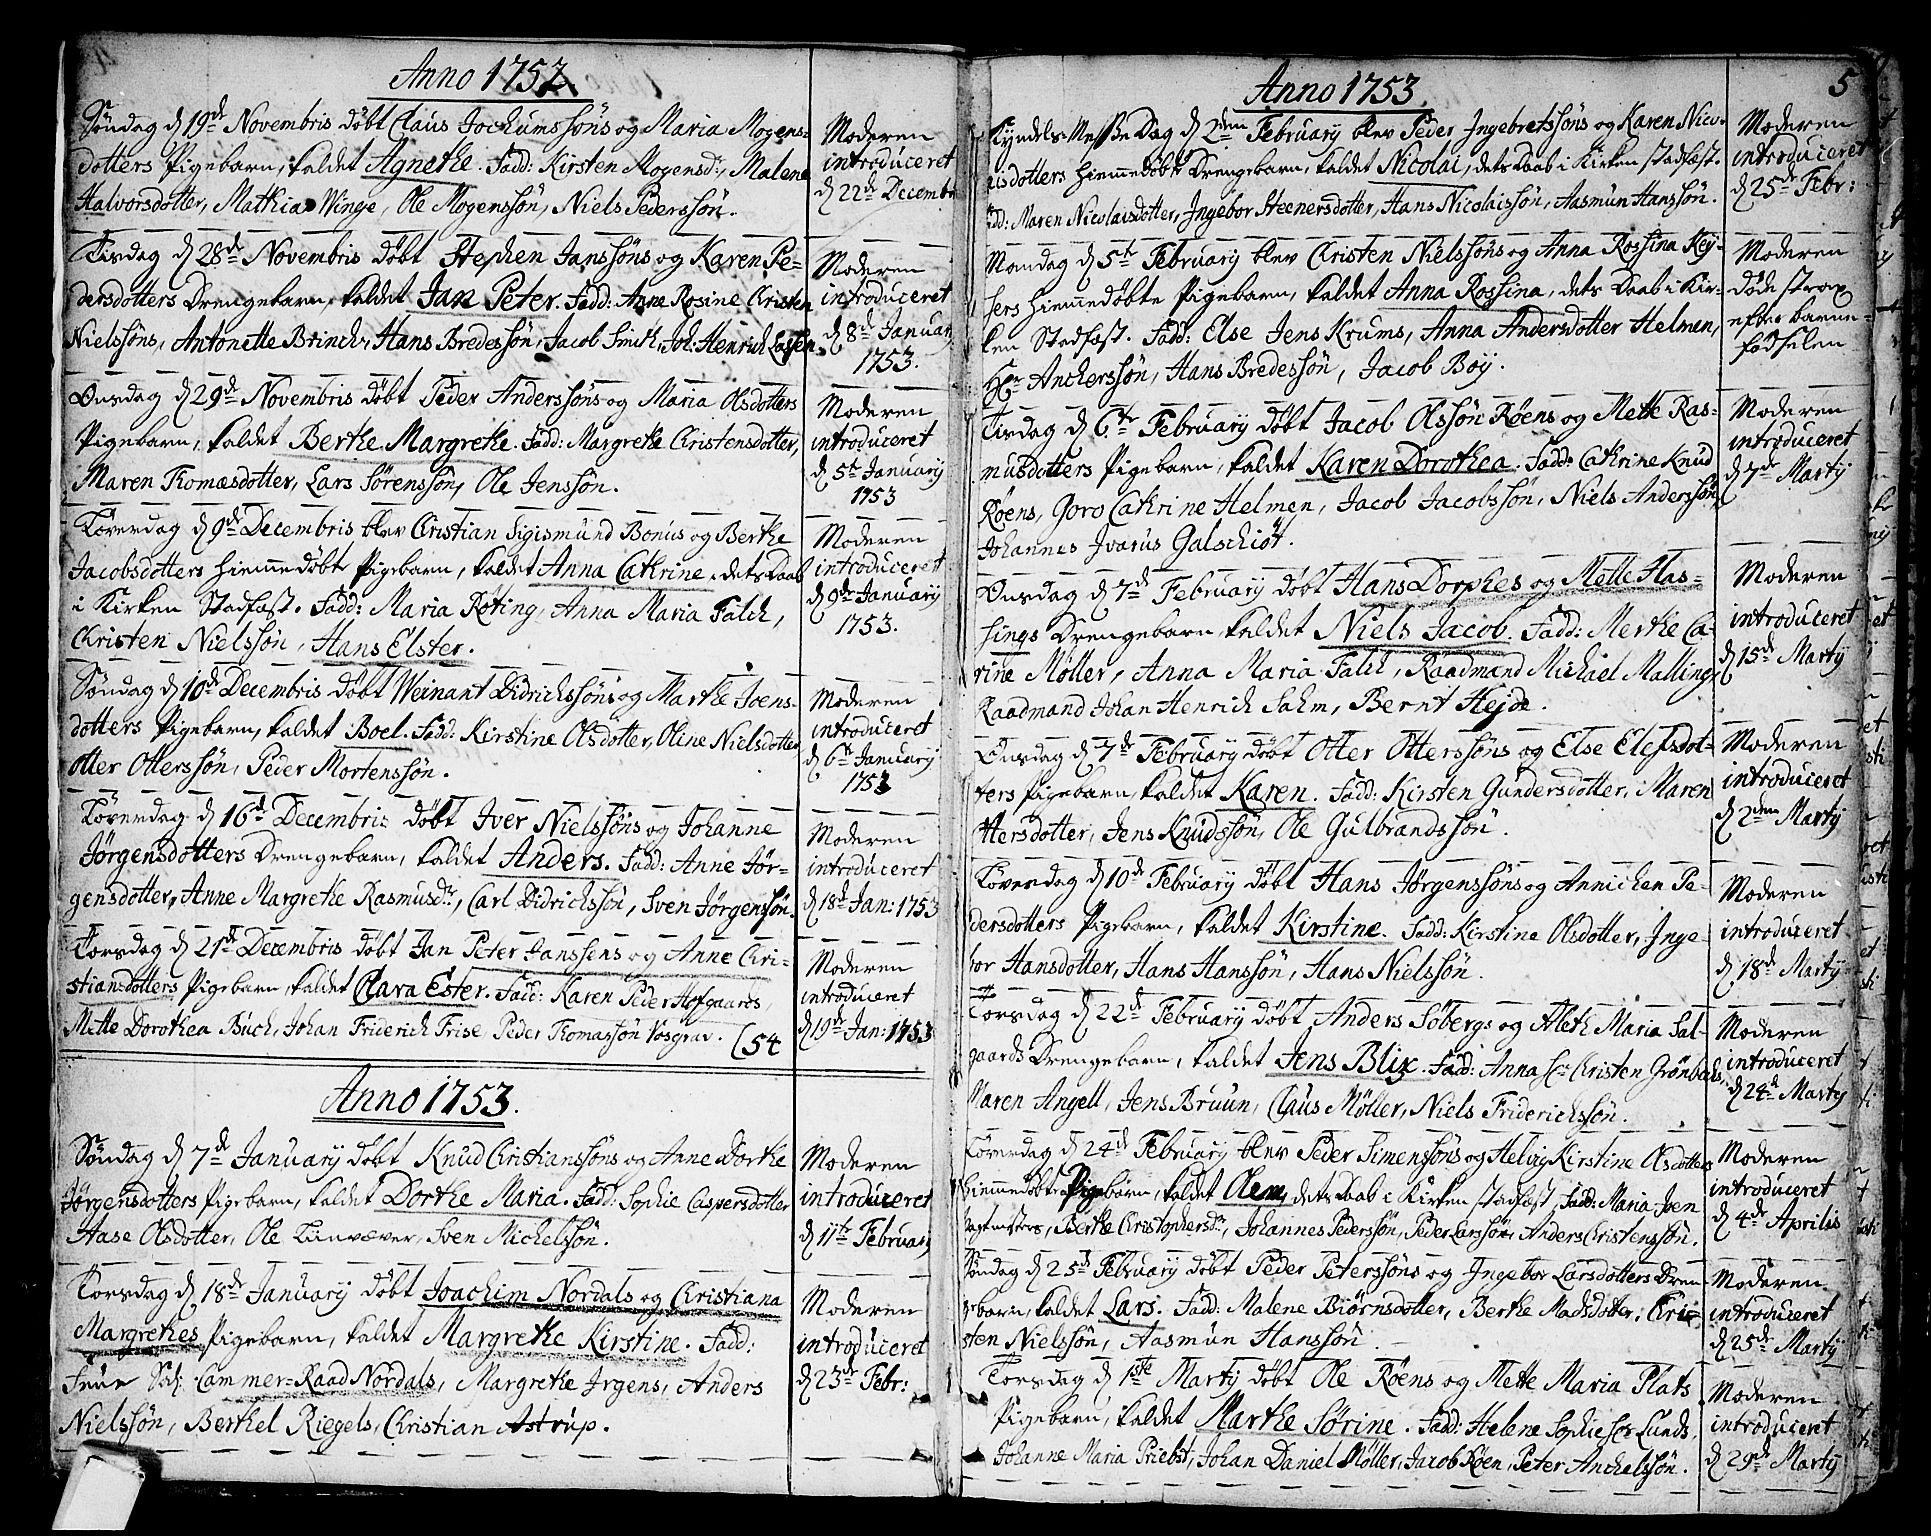 Anno 1752
Søndag d 19de Novembris døbt Claus Jochumssøns og Maria Mogens-
dotters Pigebarn, kaldet Agnethe. Fadd: Kirsten Mogensd:, Malene
Halvorsdotter, Mathias Winge, Ole Mogenssøn, Niels Pederssøn.
Moderen
introduceret
d 22de Decembr
Tisdag d 28de Novembris døbt Stephen Janssøns og Karen Pe-
dersdotters Drengebarn, kaldet Jan Peter. Fadd: Anne Rosine Christen
Nielssøns, Antonette Brinch, Hans Bredessøn, Jacob Smith, Joh: Henrich Lassen.
Moderen
introduceret
d 8de Januar
1753.
Onsdag d 29de Novembris døbt Peder Anderssøns og Maria Olsdotters
Pigebarn, kaldet Berthe Margrethe. Fadd: Margrethe Christensdotter,
Maren Thomæsdotter, Lars Sørenssøn, Ole Jenssøn.
Moderen
introduceret
d 5te Januarij
1753
Løverdag d 9de Decembris blev Christian Sigismund Bonus og Berthe
Jacobsdotters hiemmedøbt Pigebarn, kaldet Anna Cathrine, dets Daab
i Kirken Stadfæst. Fadd: Maria Røting, Anna Maria Falch,
Christen Nielssøn, Hans Elster.
Moderen
introduceret
d 9de Januarij
1753.
Søndag d 10de Decembris døbt Weinant Didrichssøns og Marthe Joens-
dotters Pigebarn, kaldet Boel. Fadd: Kirstine Olsdotter, Oline Nielsdotter
Otter Otterssøn, Peder Mortenssøn.
Moderen
introduceret
d 6te Januarij
1753
Løverdag d 16de Decembris døbt Iver Nielssøns og Johanne
Jørgensdotters Drengebarn, kaldet Anders. Fadd: Anne Jør-
gensdotter, Anne Margrethe Rasmusdr, Carl Didrichssøn, Sven Jørgenssøn.
Moderen
introduceret
d 18de Jan: 1753
Torsdag d 21de Decembris døbt Jan Peter Janssens og Anne Chri-
stiansdotters Pigebarn, kaldet Clara Ester. Fadd: Karen Peder Hofgaards,
Mette Dorothea Buch, Johan Friderich Frise, Peder Thomassøn Vosgrav. (54
Moderen
introduceret
d 19de Jan: 1753
Anno 1753.
Søndag d 7de Januarij døbt Knud Christianssøns og Anne Dorthe
Jørgensdotters Pigebarn, kaldet Dorthe Maria. Fadd: Sophie Caspersdotter
Aase Olsdotter, Ole Linvæver, Sven Michelssøn.
Moderen
introduceret
d 11te Februarij
Torsdag d 18de Januarij døbt Joachim Nordals og Christiana
Margrethes Pigebarn, kaldet Margrethe Kirstine. Fadd:
Frue Sal: Cammer-Raad Nordals, Margrethe Irgens, Anders
Nielssøn, Berthel Riegels, Christian Astrup.
Moderen
introduceret
d 23de Febr:
Anno 1753
5
Kyndels Messe Dag d 2den Februarij blev Peder Ingebretssøns og Karen Nico-
laisdotters hiemmedøbte Drengebarn, kaldet Nicolai, dets Daab i Kirken stadfæst.
Fadd: Maren Nicolaisdotter, Ingebor Steenersdotter, Hans Nicolaissøn, Aasmun Hanssøn.
Moderen
introduceret
d 25de Febr:
Mandag d 5te Februarij blev Christen Nielssøns og Anna Rossina Key-
sers hiemmedøbte Pigebarn, kaldet Anna Rossina, dets Daab i Kir-
ken Stadfæst. Fadd: Else Jens Krums, Anna Andersdotter Helmen,
Hr. Anckerssøn, Hans Bredessøn, Jacob Boy.
Moderen
døde strax
efter barne-
fødselen
Tirsdag d 6te Februarij døbt Jacob Olssøn Røens og Mette Ras-
musdotters Pigebarn, kaldet Karen Dorothea. Fadd: Cathrine Knud
Røens, Goro Cathrine Helmen, Jacob Jacobssøn, Niels Anderssøn,
Johannes Ivarus Galschiøt.
Moderen
introduceret
d 7de Martij
Onsdag d 7de Februarij døbt Hans Dorphes og Mette Has-
sings Drengebarn, kaldet Niels Jacob. Fadd: Merthe Ca-
rine Møller, Anna Maria Falch, Raadmand Michael Malling,
Raadmand Johan Henrich Sahm, Bernt Hejde.
Moderen
introduceret
d 15de Martij
Onsdag d 7de Februarij døbt Otter Otterssøns og Else Elefsdot-
ters Pigebarn, kaldet Karen. Fadd: Kirsten Gundersdotter, Maren
Ottersdotter, Jens Knudssøn, Ole Gulbrandssøn.
Moderen
introduceret
d 2den Martij
Løverdag d 10de Februarij døbt Hans Jørgenssøns og Annichen Pe-
dersdotters Pigebarn, kaldet Kirstine. Fadd: Kirstine Olsdotter, Inge-
bor Hansdotter, Hans Hanssøn, Hans Nielssøn.
Moderen
introduceret
d 18de Martij
Torsdag d 22de Februarij døbt Anders Søbergs og Aleth Maria Sal-
gaards Drengebarn, kaldet Jens Blix. Fadd: Anna Sl: Christen Grønbechs,
Maren Angell, Jens Bruun, Claus Møller, Niels Friderichssøn.
Moderen
introduceret
d 24de Martij
Løverdag d 24de Februarij blev Peder Simenssøns og Helvig Kirstine Olsdotters
hiemmedøbte Pigebarn, kaldet Olem, dets Daab i Kirken stadfæst, Fadd: Maria Joen
Berthe Christophersdr, Johannes Pederssøn, Peder Larssøn, Anders Christenssøn.
Moderen
introduceret
d 4de Aprilis
Søndag d 25de Februarij døbt Peder Peterssøns og Ingebor Larsdotters Dren-
gebarn, kaldet Lars. Fadd: Malene Biørnsdotter, Berthe Madsdotter, Chri-
sten Nielssøn, Aasmun Hanssøn.
Moderen
introduceret
d 25de Martij
Torsdag d 1ste Martij døbt Ole Røens og Mette Maria Plats
Pigebarn, kaldet Marthe Sørine. Fadd: Helene Sophie Sl: Lunds,
Johanne Maria Priebst, Johan Daniel Møller, Jacob Røen, Peter Anchelssøn.
Moderen
introduceret
d 29de Martij